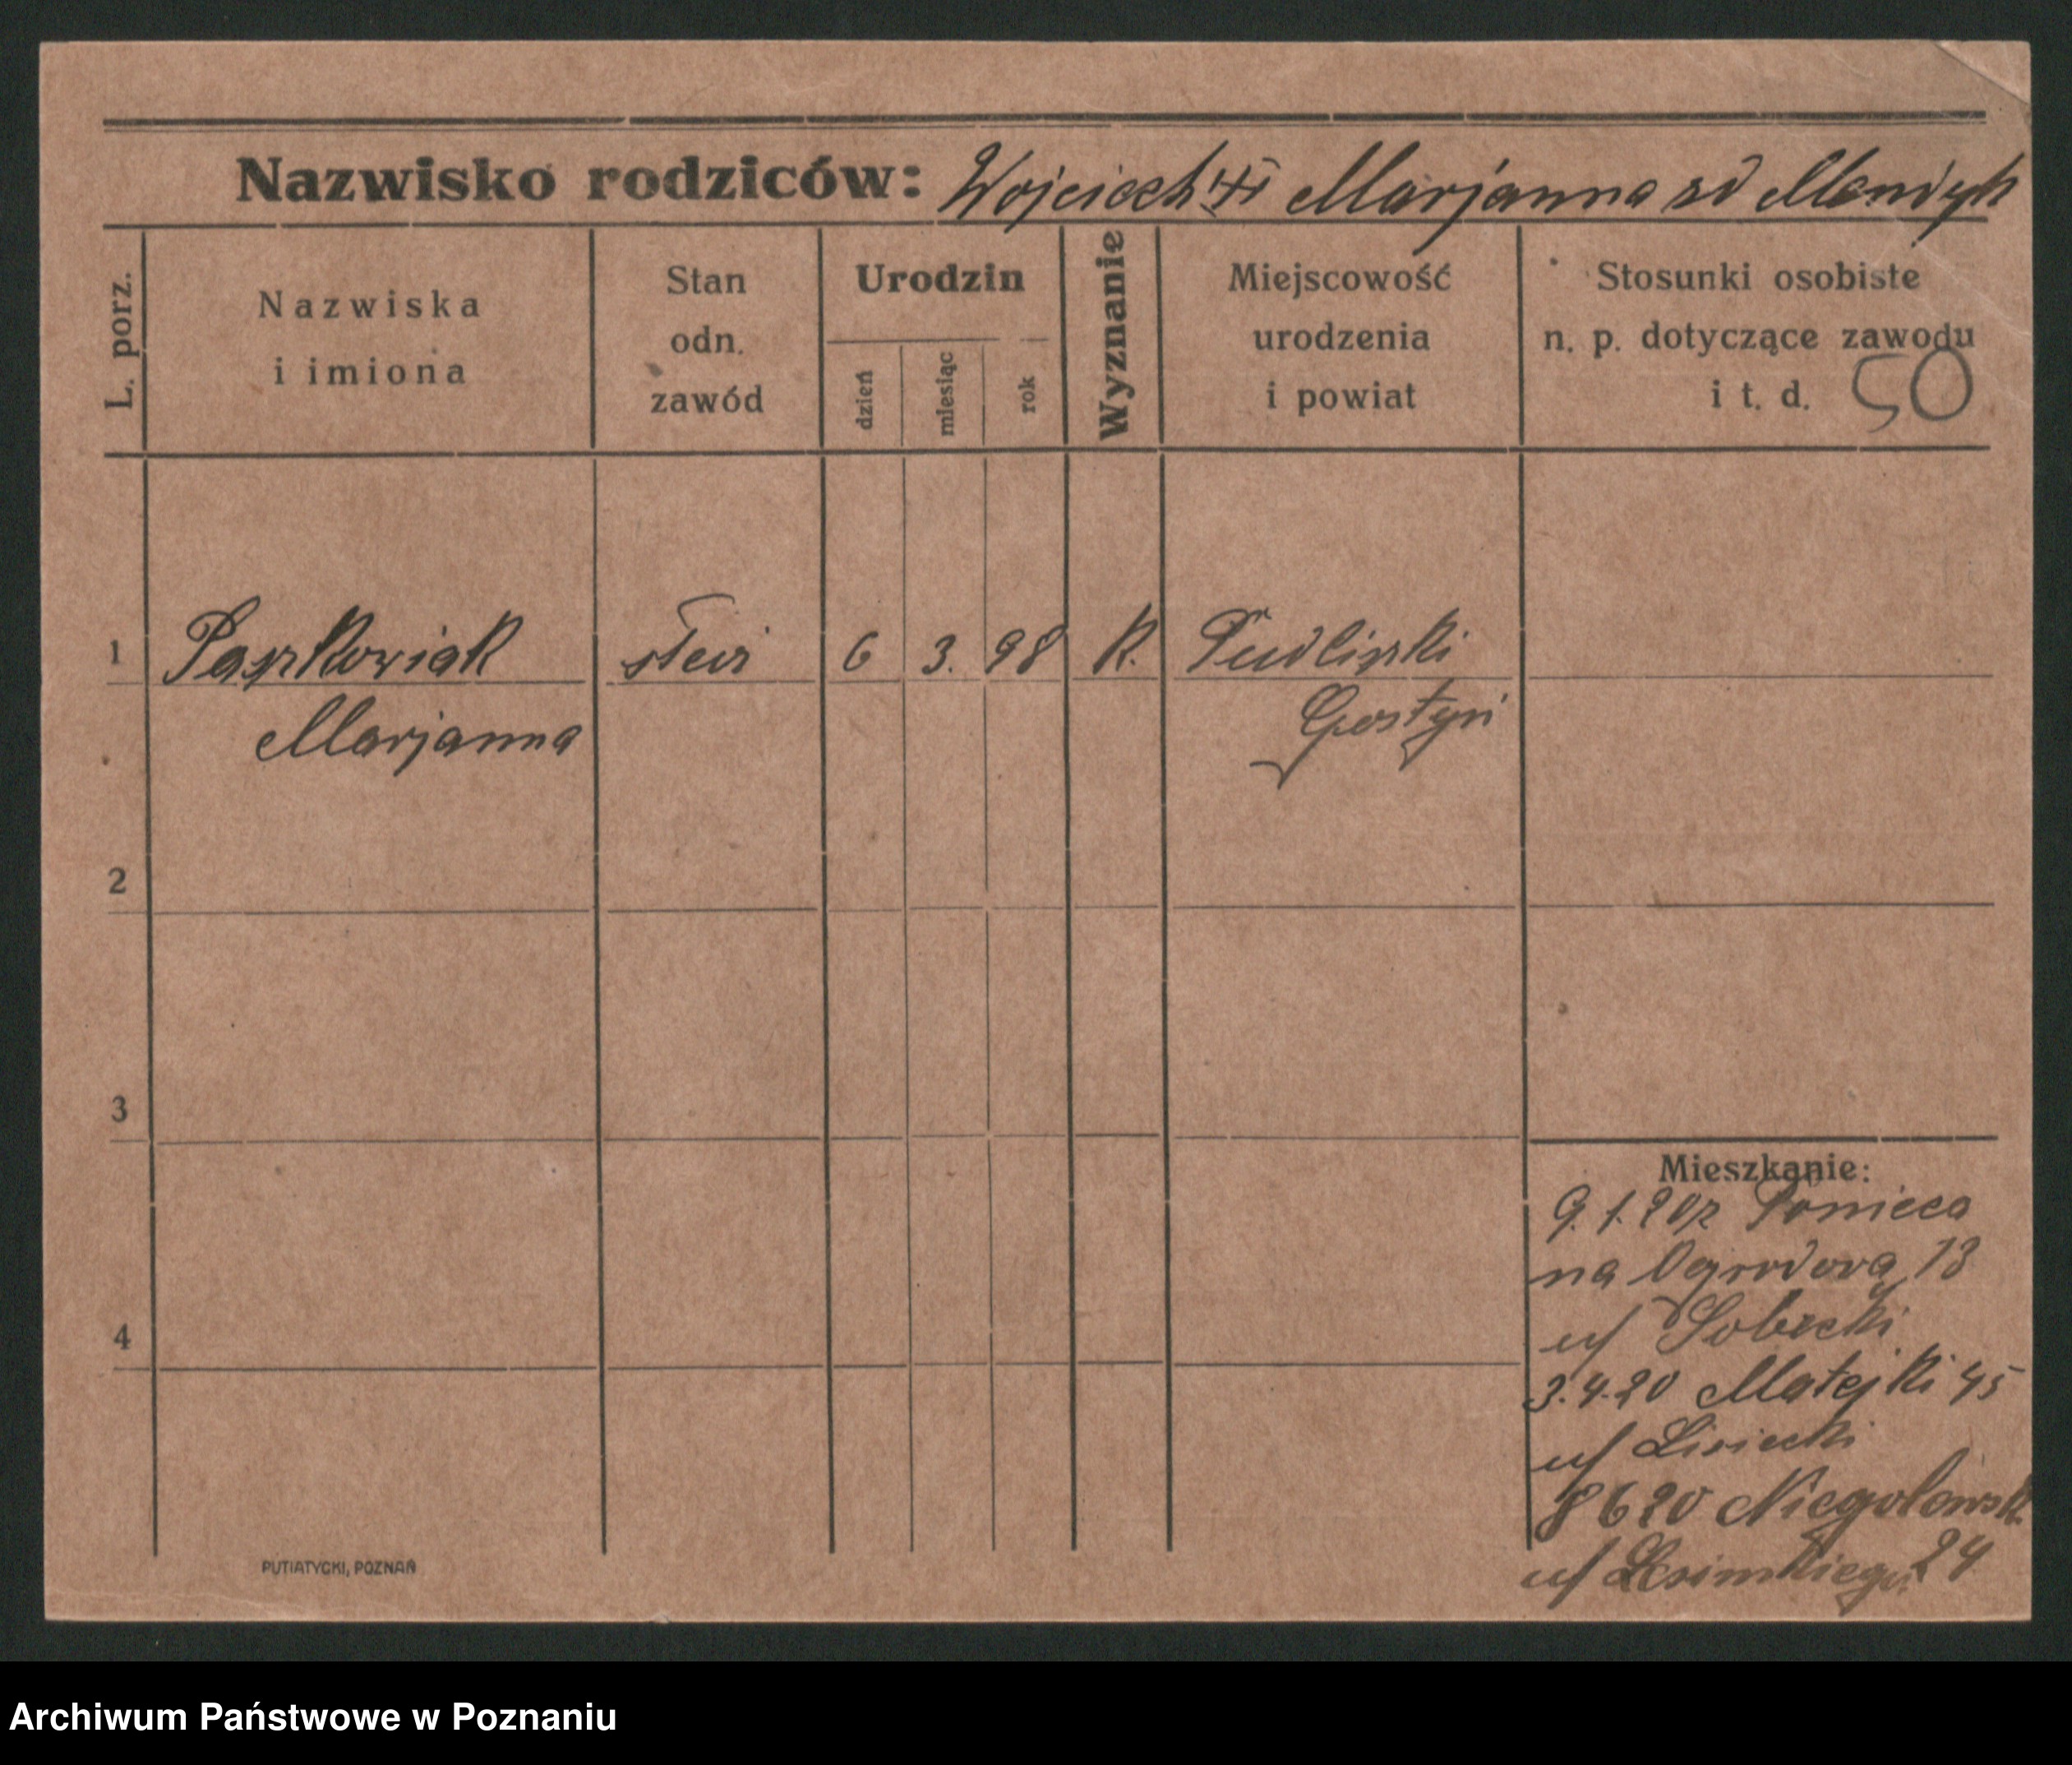 Nazwisko rodziców: Wojciech i Marjanna zd Mendyk
L. porz.
Nazwiska
i imiona
Stan
odn.
zawód
Urodzin
dzień
miesiąc
rok
Wyznanie
Miejscowość
urodzenia
i powiat
Stosunki osobiste
n. p. dotyczące zawodu
i t. d. 50
1 Paszkowiak 6 3. 98 K. Pudliszki
Marjanna Gostyń
2
3
4
Mieszkanie:
9.1.20 z Ponieca
na Ogrodową 13
u/ Sobecki
3.4.20 Matejki 45
u/ Lisiecki
8 6 20 Niegolewsk.
u/ 24
PUTIATYCKI, POZNAŃ
Archiwum Państwowe w Poznaniu